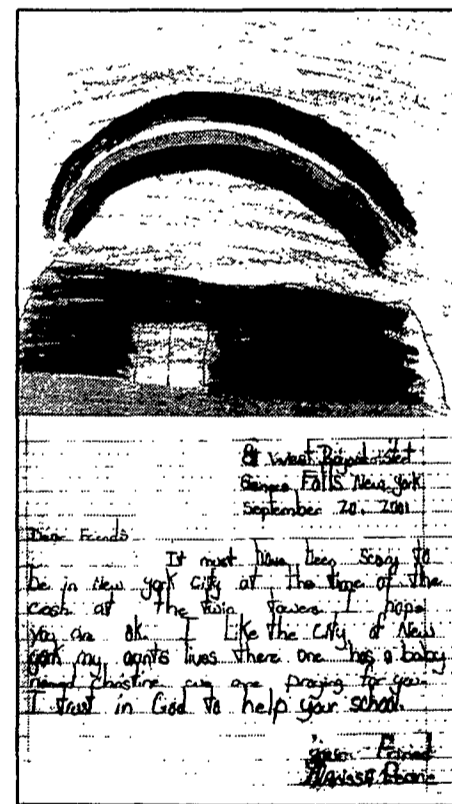 West
Seneca Falls New York
September 20, 2001
Dear Friends
It must have been Scary to
be in New York City at the time of the
Crash at the twin towers I hope
you are ok. I Like the City of New
york my aants lives there one has a baby
named Christine we are praying for you
I trust in God to help your school.